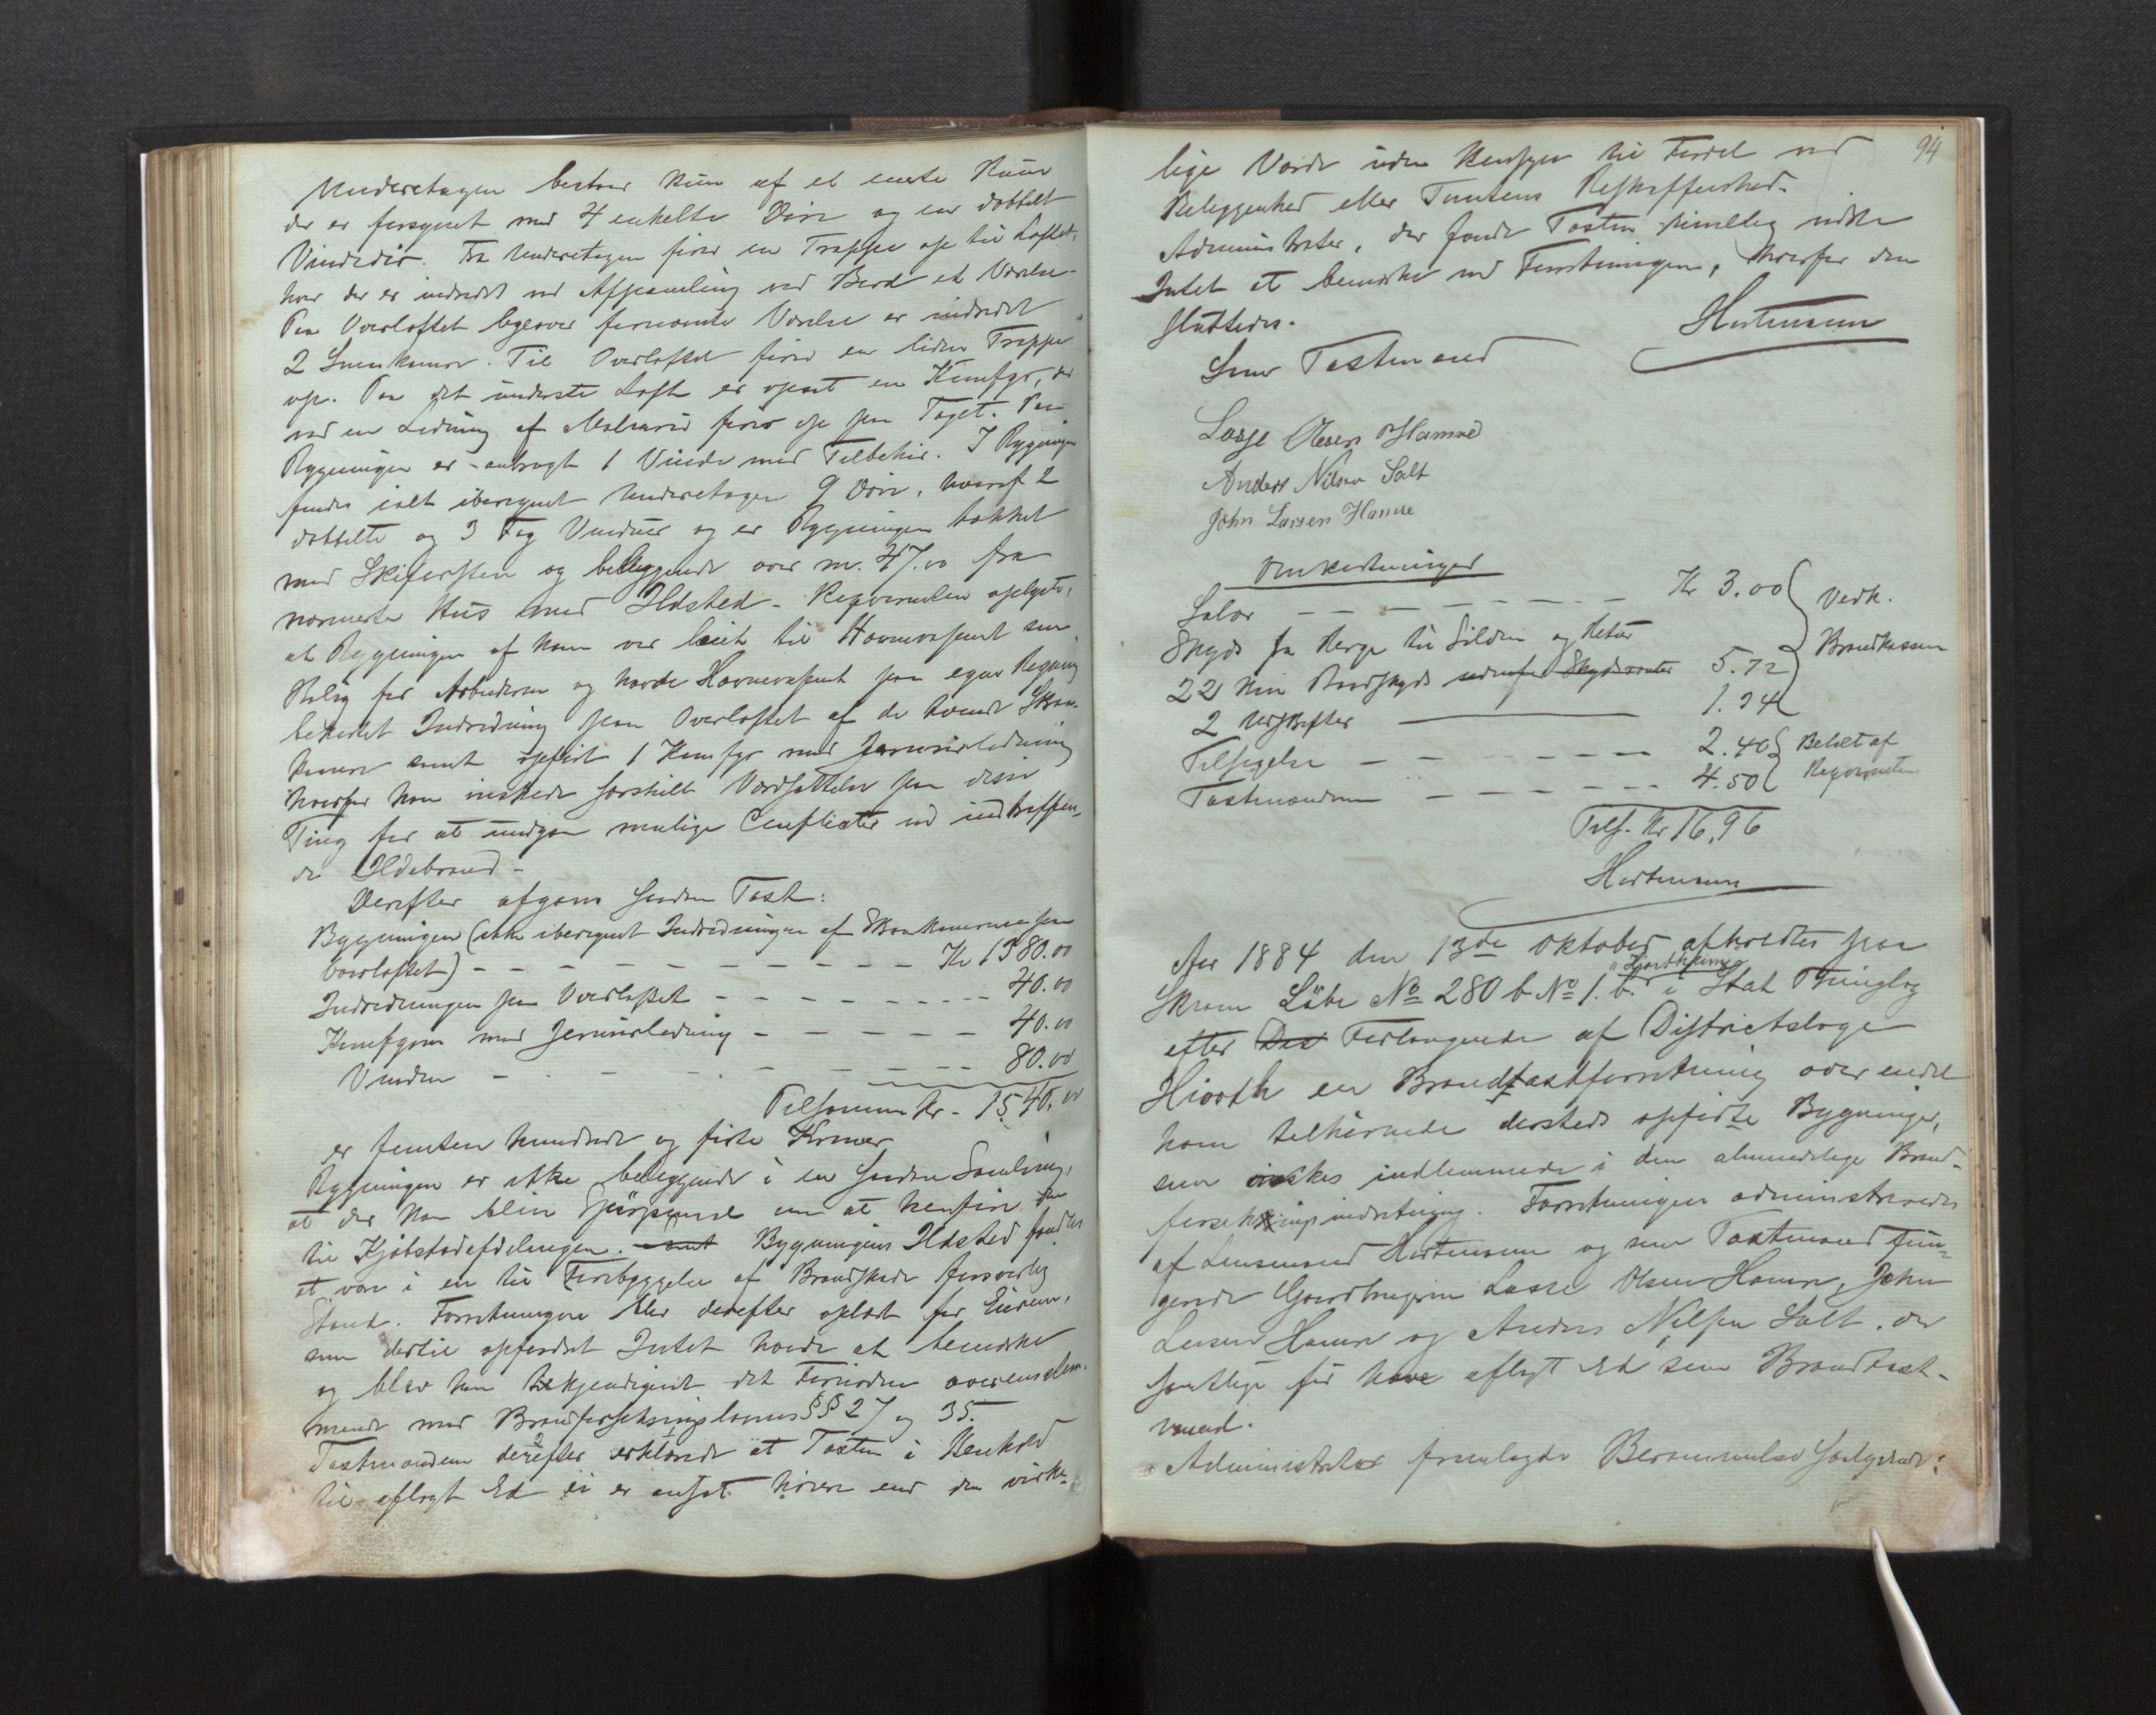 Underetagen bestaar kun af et eneste Rum
der er forsynet med 4 enkelte Döre og en dobbelt
Vindedör. Fra Underetagen förer en Trappe op til Loftet,
hvor der er indredet ved Afpanling med Bord et Værelse.
Paa Overloftet ligeover fornævnte Værelse er indredet
2 Smaakamre. Til Overloftet förer en liden Trappe
op. Paa det underste Loft er opsat en Komfyr, der
ved en Ledning af förer op paa Taget. Paa
Bygningen er anbragt 1 Vinde med Tilbehör. I Bygningen
findes ialt iberegnet Underetagen 9 Döre, hvoraf 2
dobbelte og 3 Fag Vinduer og er Bygningen tækket
med Skifersten og beliggende over m. 47.00 fra
nærmeste Hus med Ildsted. Rekvirenten oplyste,
at Bygningen af ham var leiet til Havnevæsenet som
Bolig for Arbeiderne og havde Havnevæsenet paa egen Regning
bekostet Indredning paa Overloftet af de tvende Smaa-
kamre samt opfört 1 Komfyr med Jernrörledning
hvorfor han önskede særskilt Værdsættelse paa disse
Ting for at undgaa mulige Conflicter ved indtræffen-
de Ildebrand.
Derefter afgaves saadan Taxt:
Bygningen (ikke iberegnet Indredningen af Smaakamrene paa
Overloftet) - - - - - - - - - - Kr 1380.00
Indredningen paa Overloftet - - - - - - - - 40.00
Komfyren med Jernrörledning - - - - - - 40.00
Vinden - - - - - - - - - 80.00
Tilsammen Kr. 1540.00
er femten hundrede og förti Kroner
Bygningen er ikke beliggende i en saadan Samling,
at der kan blive Spörgsmaal om at henföre den
til Kjöbstadafdelingen. samt Bygningens Ildsted fandtes
at være i en til Forebyggelse af Brandskade forsvarlig
Stand. Forretningen blev derefter oplæst for Eieren,
som dertil opfordret Intet havde at bemærke
og blev ham bekjendtgjort det Fornödne overensstem-
mende med Brandforsikringslovens §§ 27 og 35.
Taxtmændene derefter erklærede at Taxten i Henhold
til aflagt Ed ei er ansat höiere end den virke-
94
lige Værdi uden Hensyn til Fordel ved
Beliggenhed eller Tomtens Beskaffenhed.
Administrator, der fandt Taxten rimelig vidste
Intet at bemærke ved Forretningen, hvorfor den
sluttedes.
Hertenson
Som Taxtmænd
Lasse Olesen Hamre
Anders Nilsen Salt
John Larsen Hamre
Omkostninger
Salær - - - - - - - - Kr 3.00
Skyds fra Berge til Silden og Retur
22 km Baadskyds 5.72
2 Udskrifter 1.34
Vedk. Brandkassen
Tilsigelse - - - - - - 2.40
Taxtmændene - - - - - - 4.50
Betalt af Rekvirenten
Tils. Kr 16,96
Hertenson
Aar 1884 den 13de Oktober afholdtes paa
"Hjorthheim"
Skram Löbe No 280 b No 1. b. i Stat Thinglag
efter Det Forlangende af Districtslæge
Hiorth en Brandtaxtforretning over endel
ham tilhörende dersteds opförte Bygninger,
som önskes indlemmede i den almindelige Brand-
forsikringsindretning. Forretningen administreredes
af Lensmand Hertenson og som Taxtmænd fun-
gerede Gaardbrugerne Lasse Olsen Hamre, John
Larsen Hamre og Anders Nilsen Salt. der
samtlige för have aflagt Ed som Brandtaxt-
mænd.
Administrator fremlagde Berammelse saalydende: